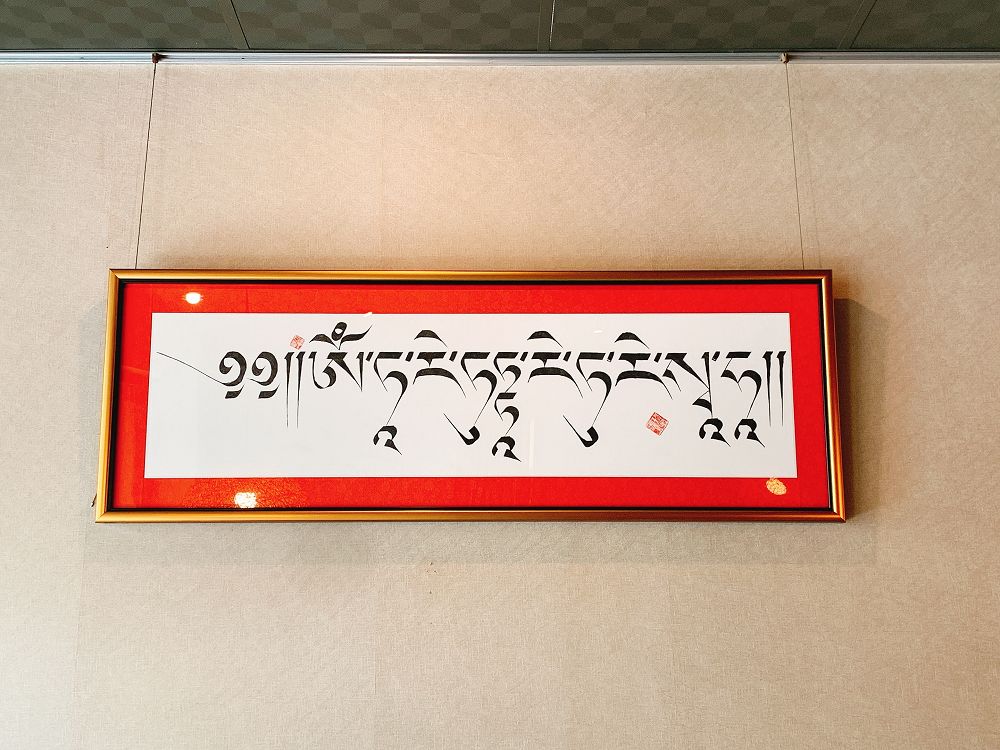 ༄༅།།ཨོཾ་ཏཱ་རེ་ཏུཏྟཱ་རེ་ཏུ་རེ་སྭཱ་ཧཱ།།